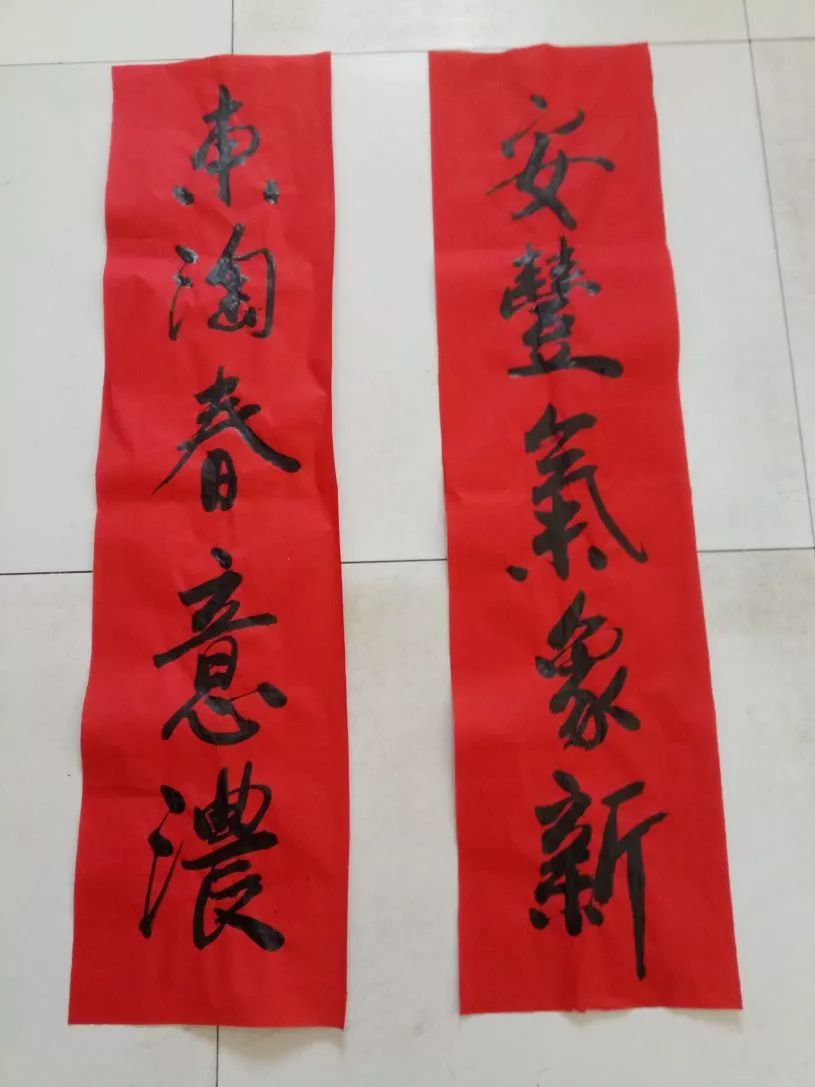 安豐氣象新
東淘春意濃